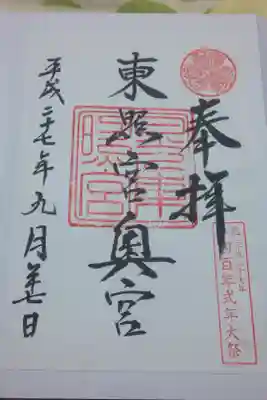 奉拝
東照宮奥宮
平成二十七年九月廿七日
四百年式年大祭